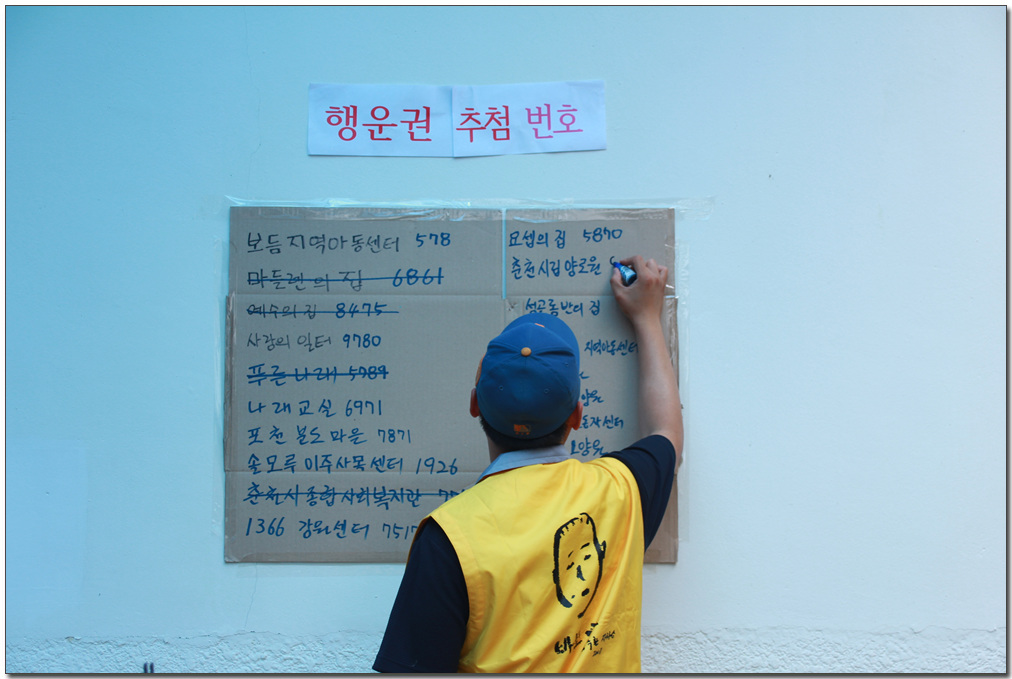 행운권 추첨 번호
보듬지역아동센터 578
마들렌의 집 6861
예수의 집 8475
사랑의 일터 9780
푸른 나래 5789
나래교실 6971
포천 분도 마을 7871
솔모루 이주사목센터 1926
춘천시종합사회복지관
1366 강원센터 7517
요셉의 집 5870
춘천시립양로원
성골롬반의 집
지역아동센터